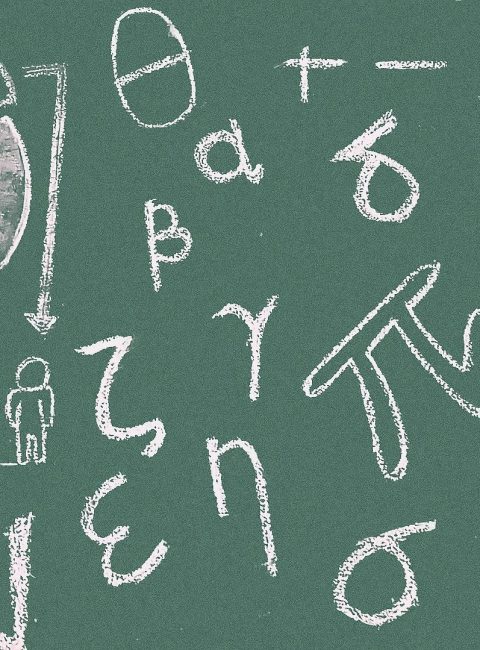 θ + −
α δ
β
γ
ζ π
η
ε
σ